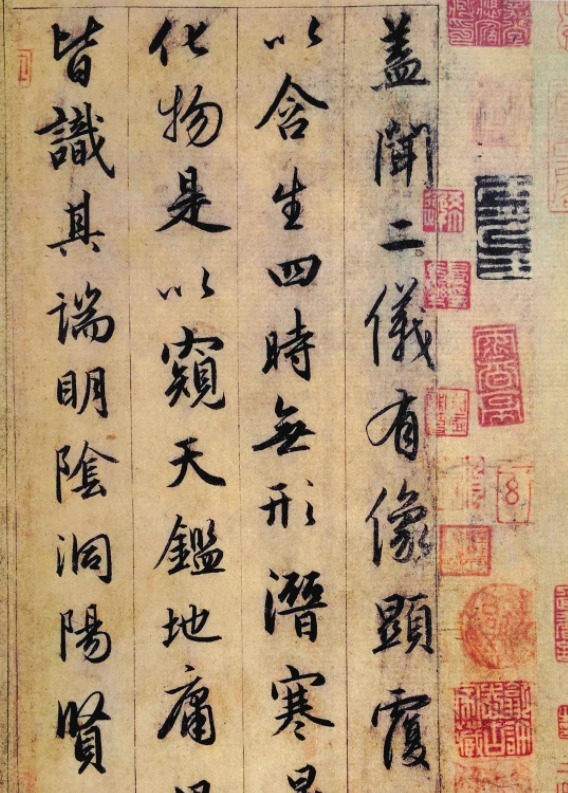 盖聞二儀有像顯覆
以含生四時無形潛寒
化物是以窺天鑑地庸
皆識其端明陰洞陽賢